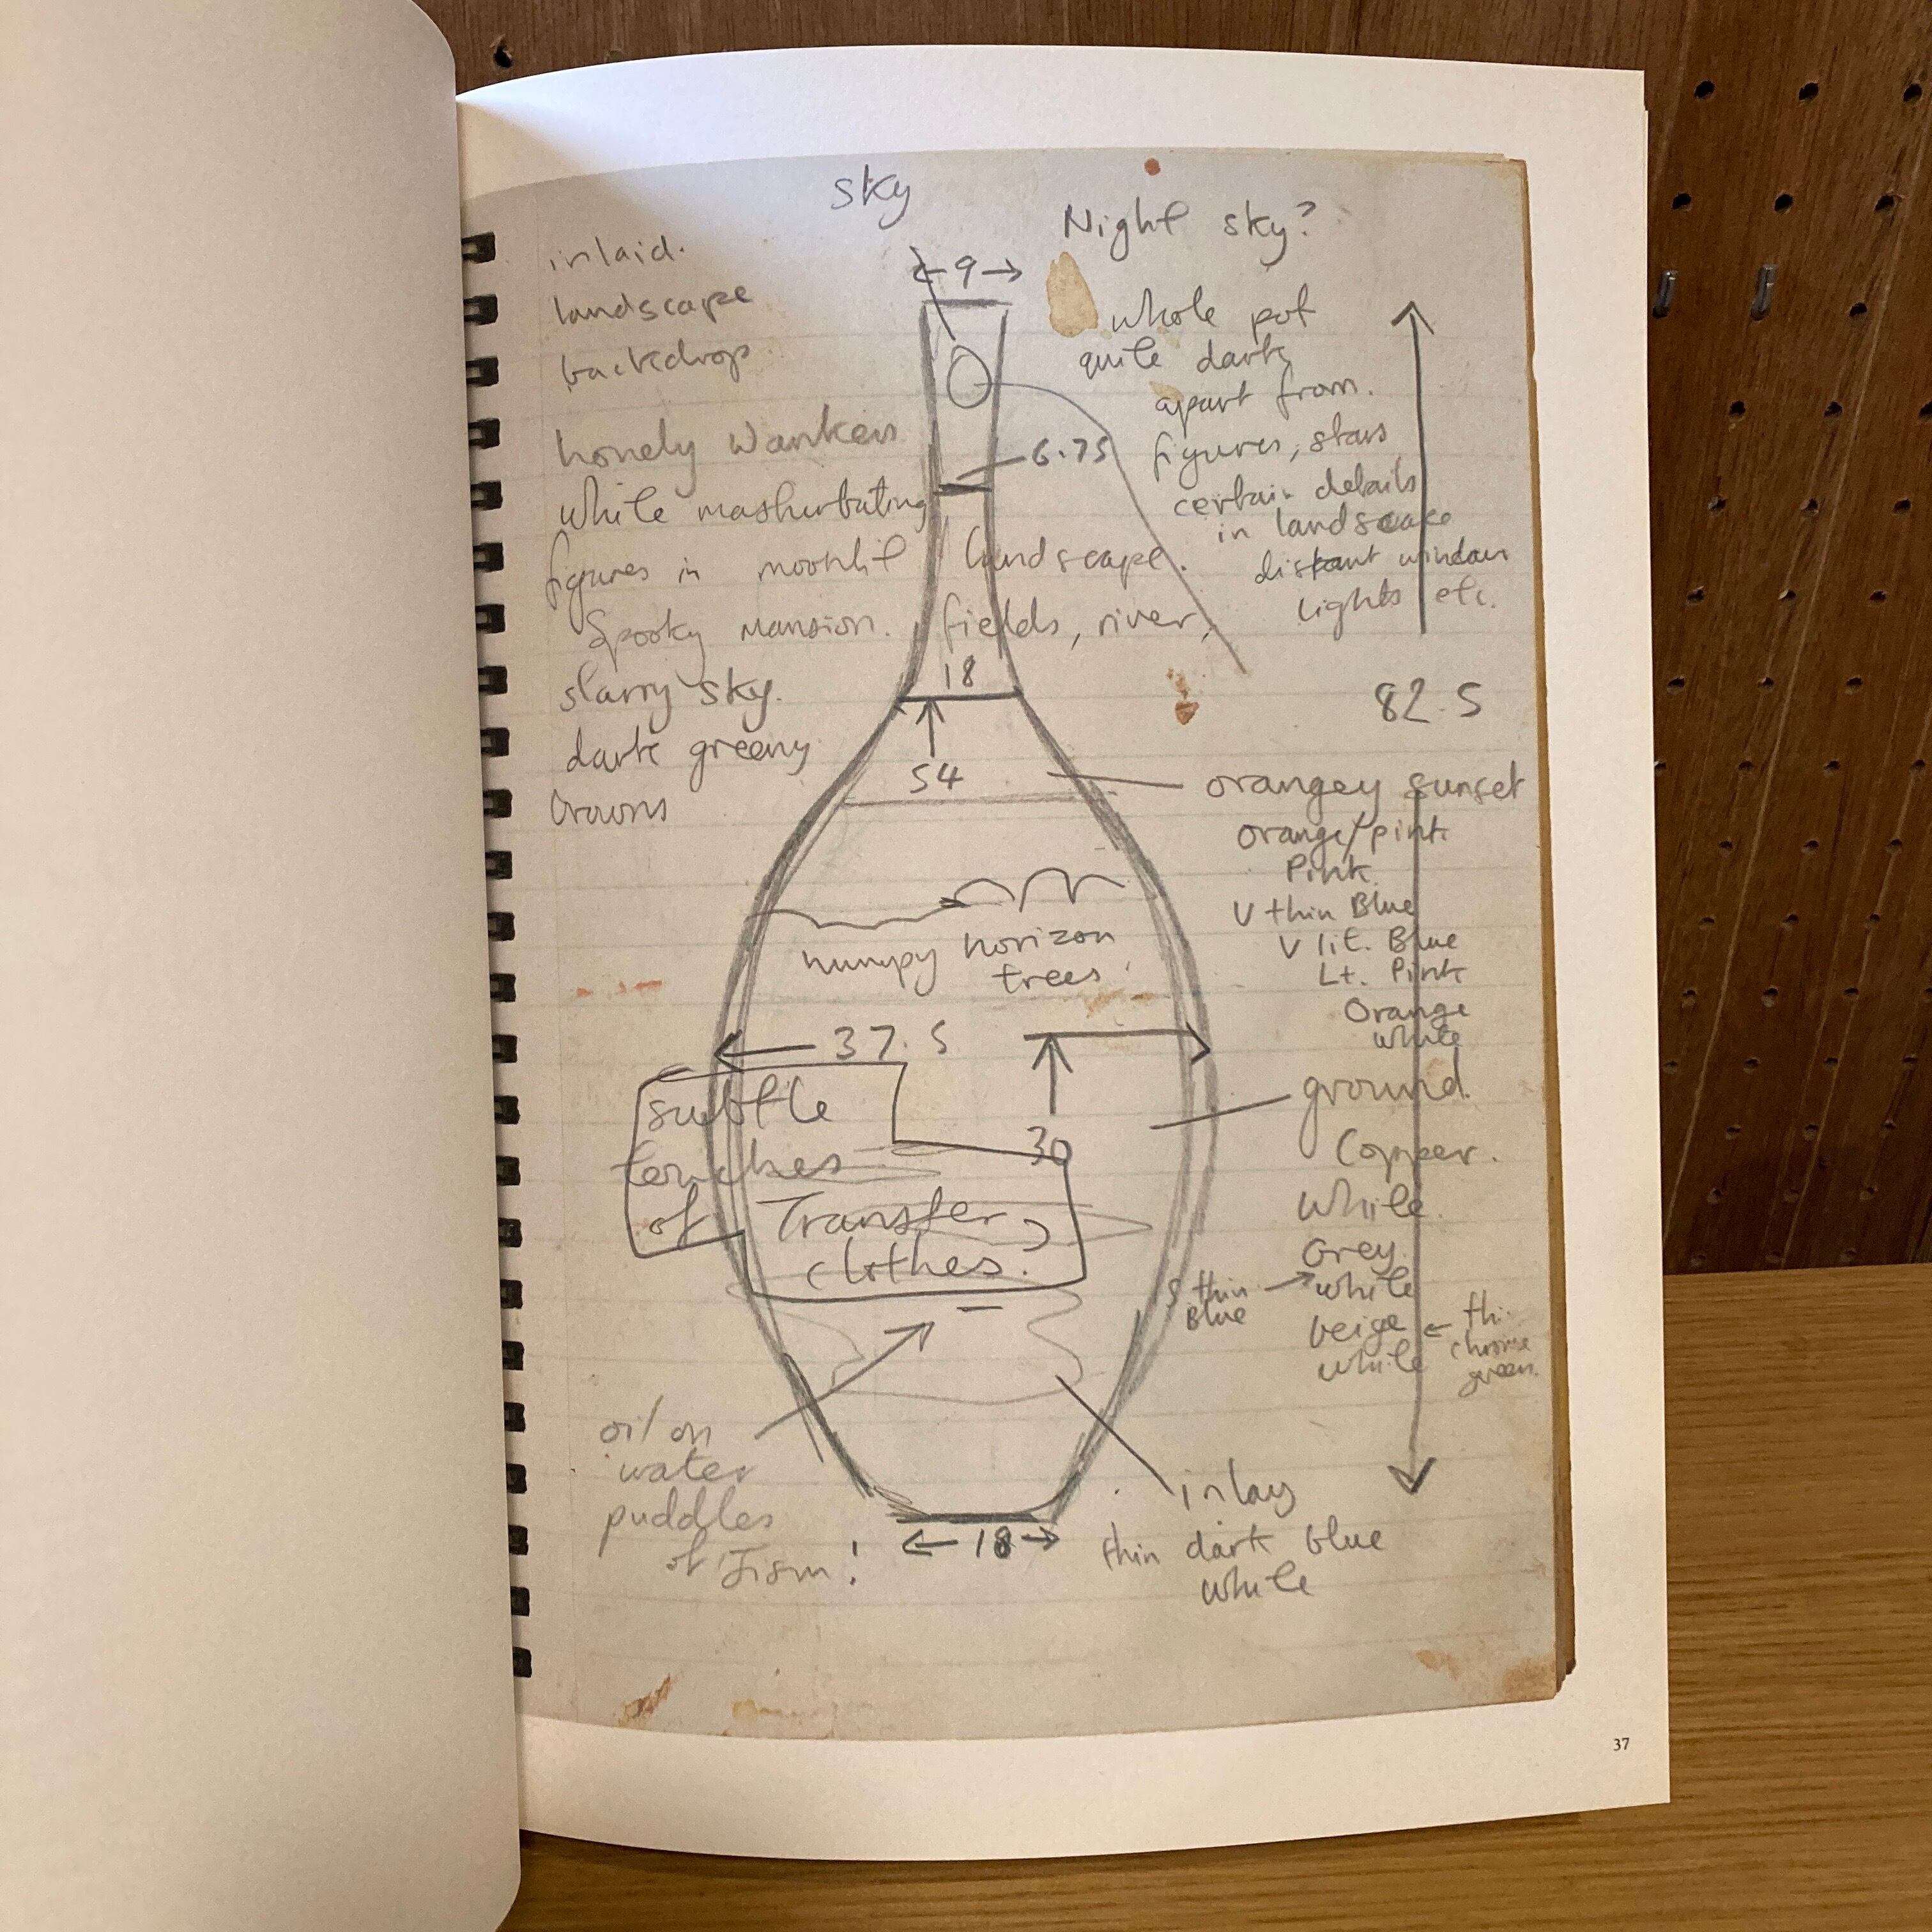 sky
Night sky?
inlaid.
landscape
backdrop.
← 9 →
whole pot
quite dark
apart from.
figures, stars
certain details
in landscape
distant window
lights etc.
6.75
lonely Wankers
white masturbating
figures in moonlit landscape.
Spooky Mansion. fields, river,
starry sky.
dark greeny
browns
18
54
82.5
orangey sunset
orange/pink
Pink
V thin Blue
V lit. Blue
Lt. Pink
Orange
white
humpy horizon
trees
37.5
30
subtle
touches
of Transfer
clothes.
ground
Copper.
White.
Grey.
white
thin
Blue
beige
white
chrome
green.
oil on
water
puddles
of Jism!
← 18 →
inlay
thin dark blue
white
37